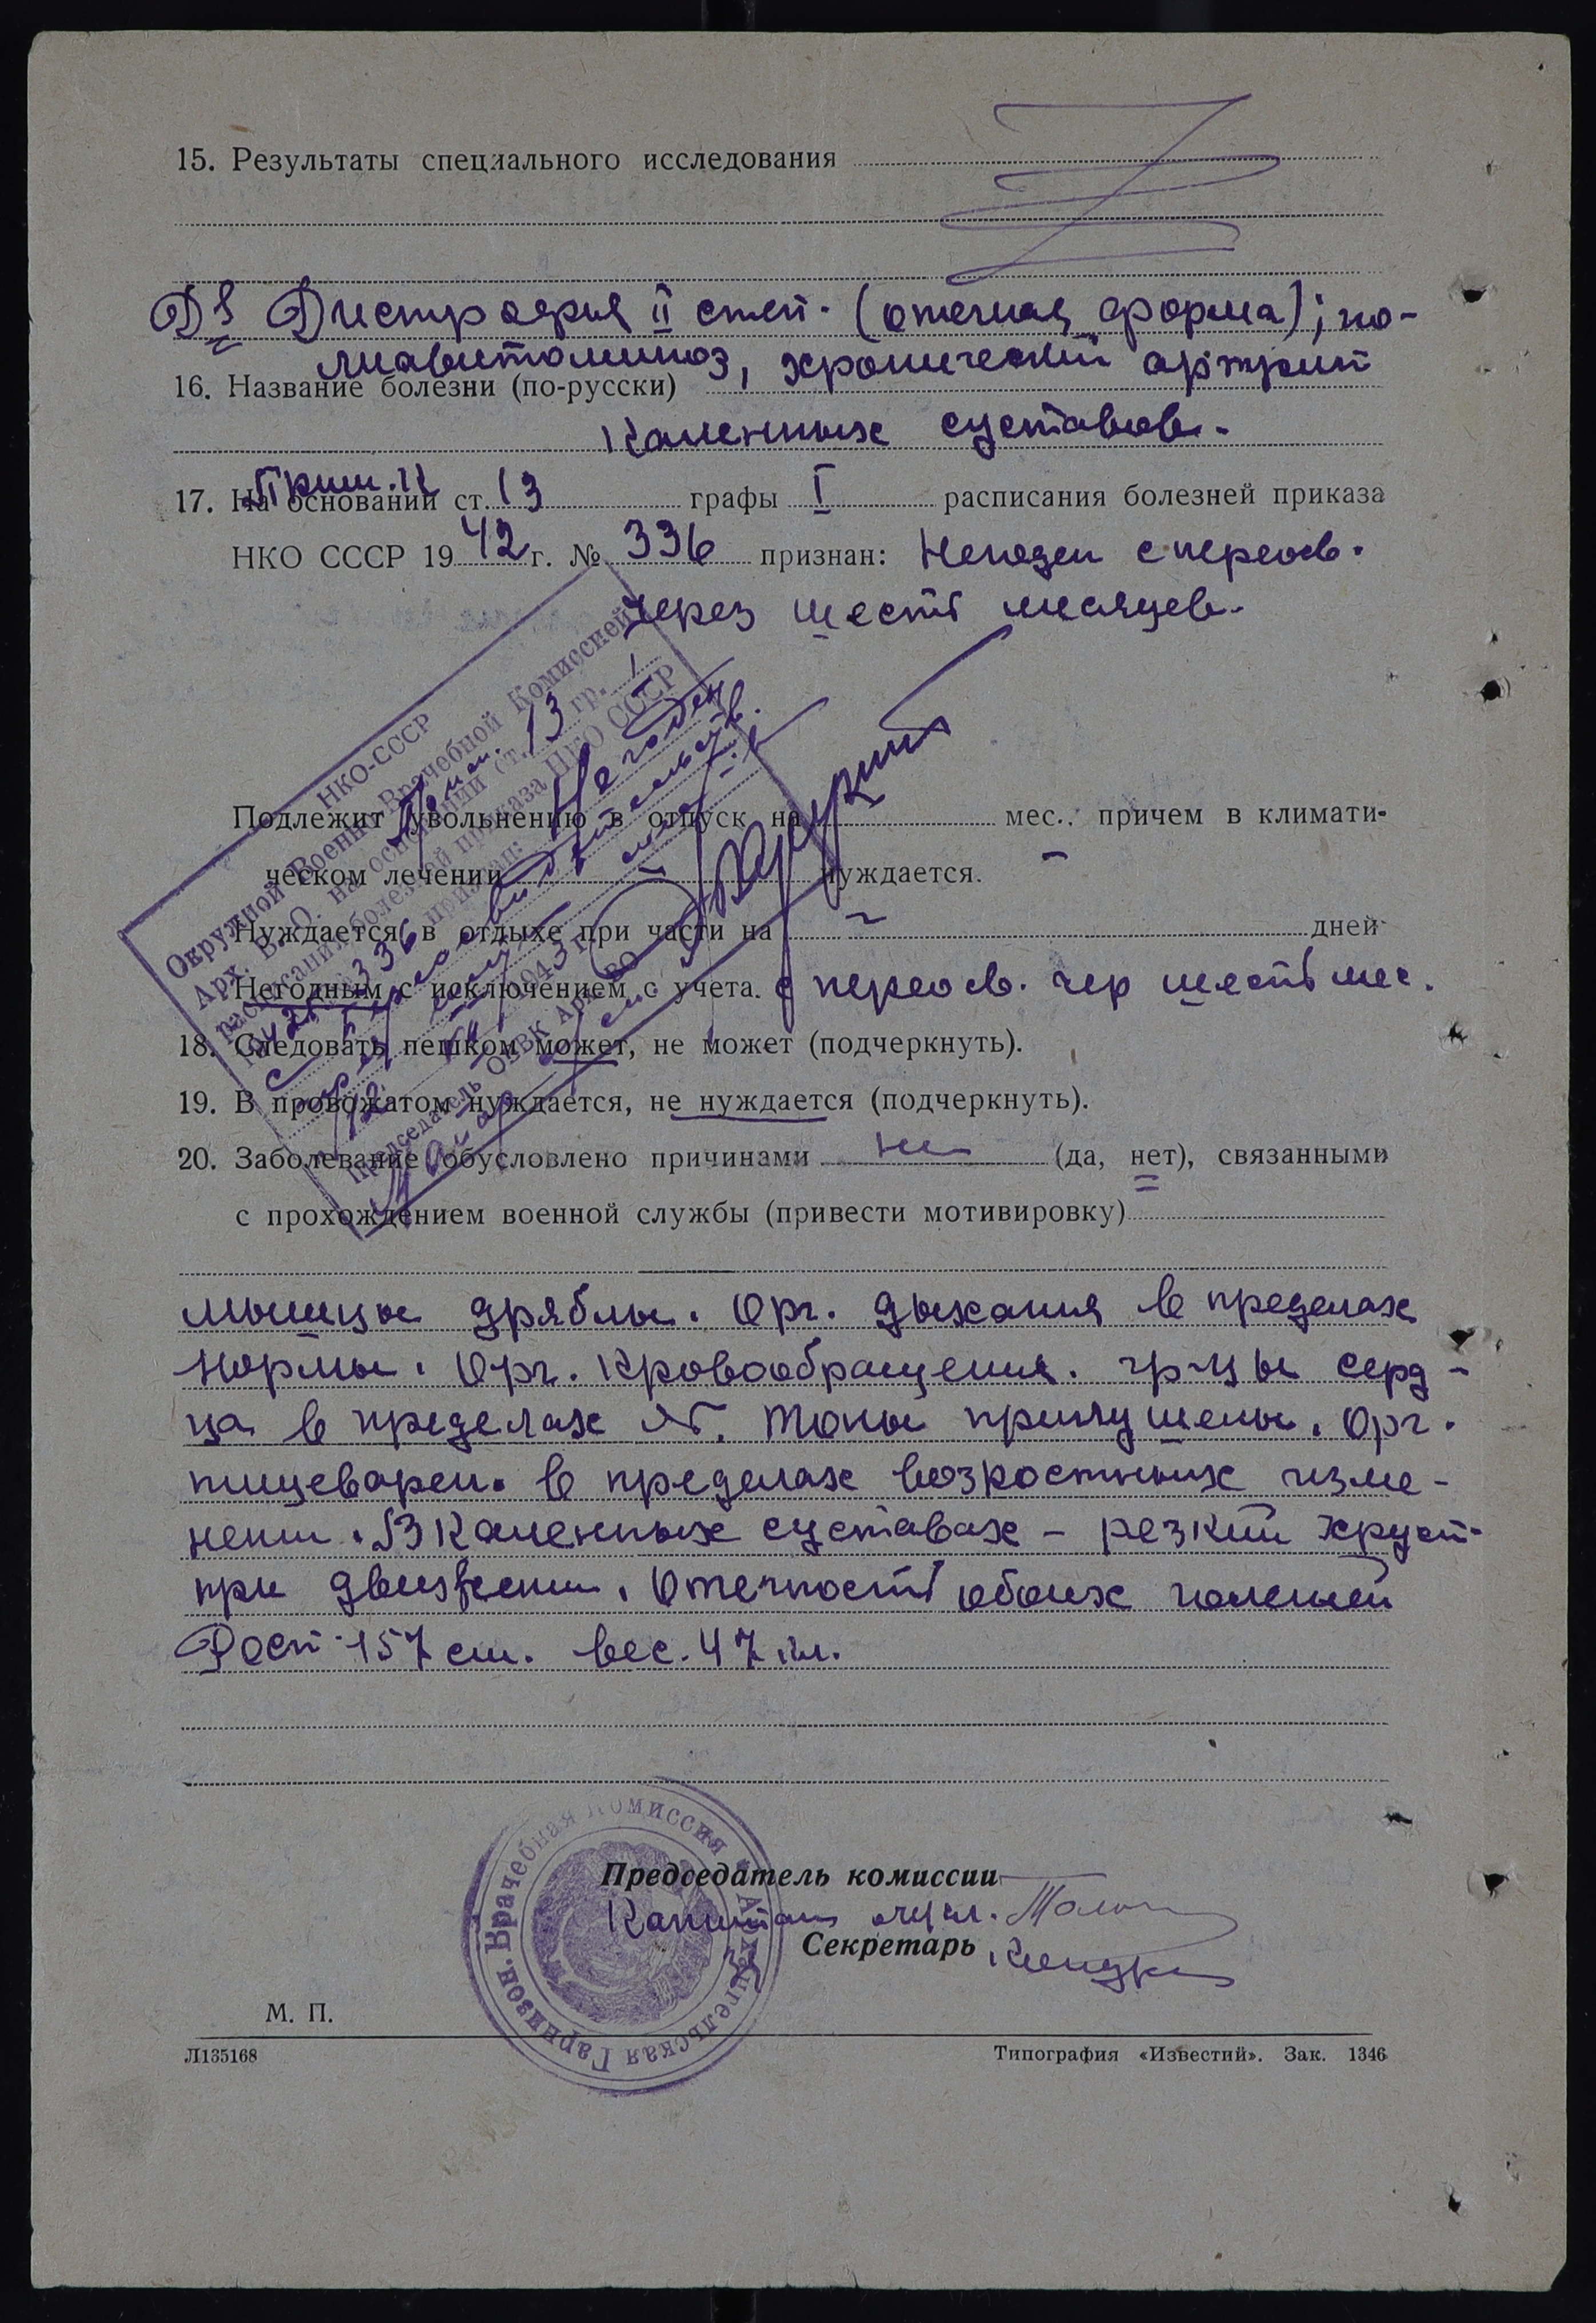 15. Результаты специального исследования
Ds Дистрофия II степ. (отечная форма); по-
лиавитоминоз, хронический артрит
16. Название болезни (по-русски)
Коленных суставов.
Прим. к
17. На основании ст. 13 графы I расписания болезней приказа
НКО СССР 1942 г. № 336 признан: Негоден с переосв.
через шесть месяцев.
НКО-СССР
Окружной Военно-Врачебной Комиссией
Арх. В. О. на основании ст. 13 гр. I
расписания болезней приказа НКО СССР
1942 г. № 336 признан: Негоден
с переосвидетельств.
через шесть мес.
Председатель ОВВК АрхВО
Подлежит увольнению в отпуск на мес., причем в климати-
ческом лечении нуждается.
Нуждается в отдыхе при части на дней
Негодным с исключением с учета. с переосв. чер шесть мес.
18. Следовать пешком может, не может (подчеркнуть).
19. В провожатом нуждается, не нуждается (подчеркнуть).
20. Заболевание обусловлено причинами не (да, нет), связанными
с прохождением военной службы (привести мотивировку)
мышцы дряблы. Орг. дыхания в пределах
нормы. Орг. Кровообращения. гр-цы серд-
ца в пределах N. Тоны приглушены. Орг.
пищеварен. в пределах возростных изме-
нении. В Коленных суставах - резкий хруст
при движении. Отечность обоих голеней
Рост 157 см. вес. 47 кл.
Врачебная Комиссия Архангельская Гарнизон.
Председатель комиссии
Капитан м/сл.
Секретарь
М. П.
Л135168 Типография «Известий». Зак. 1346